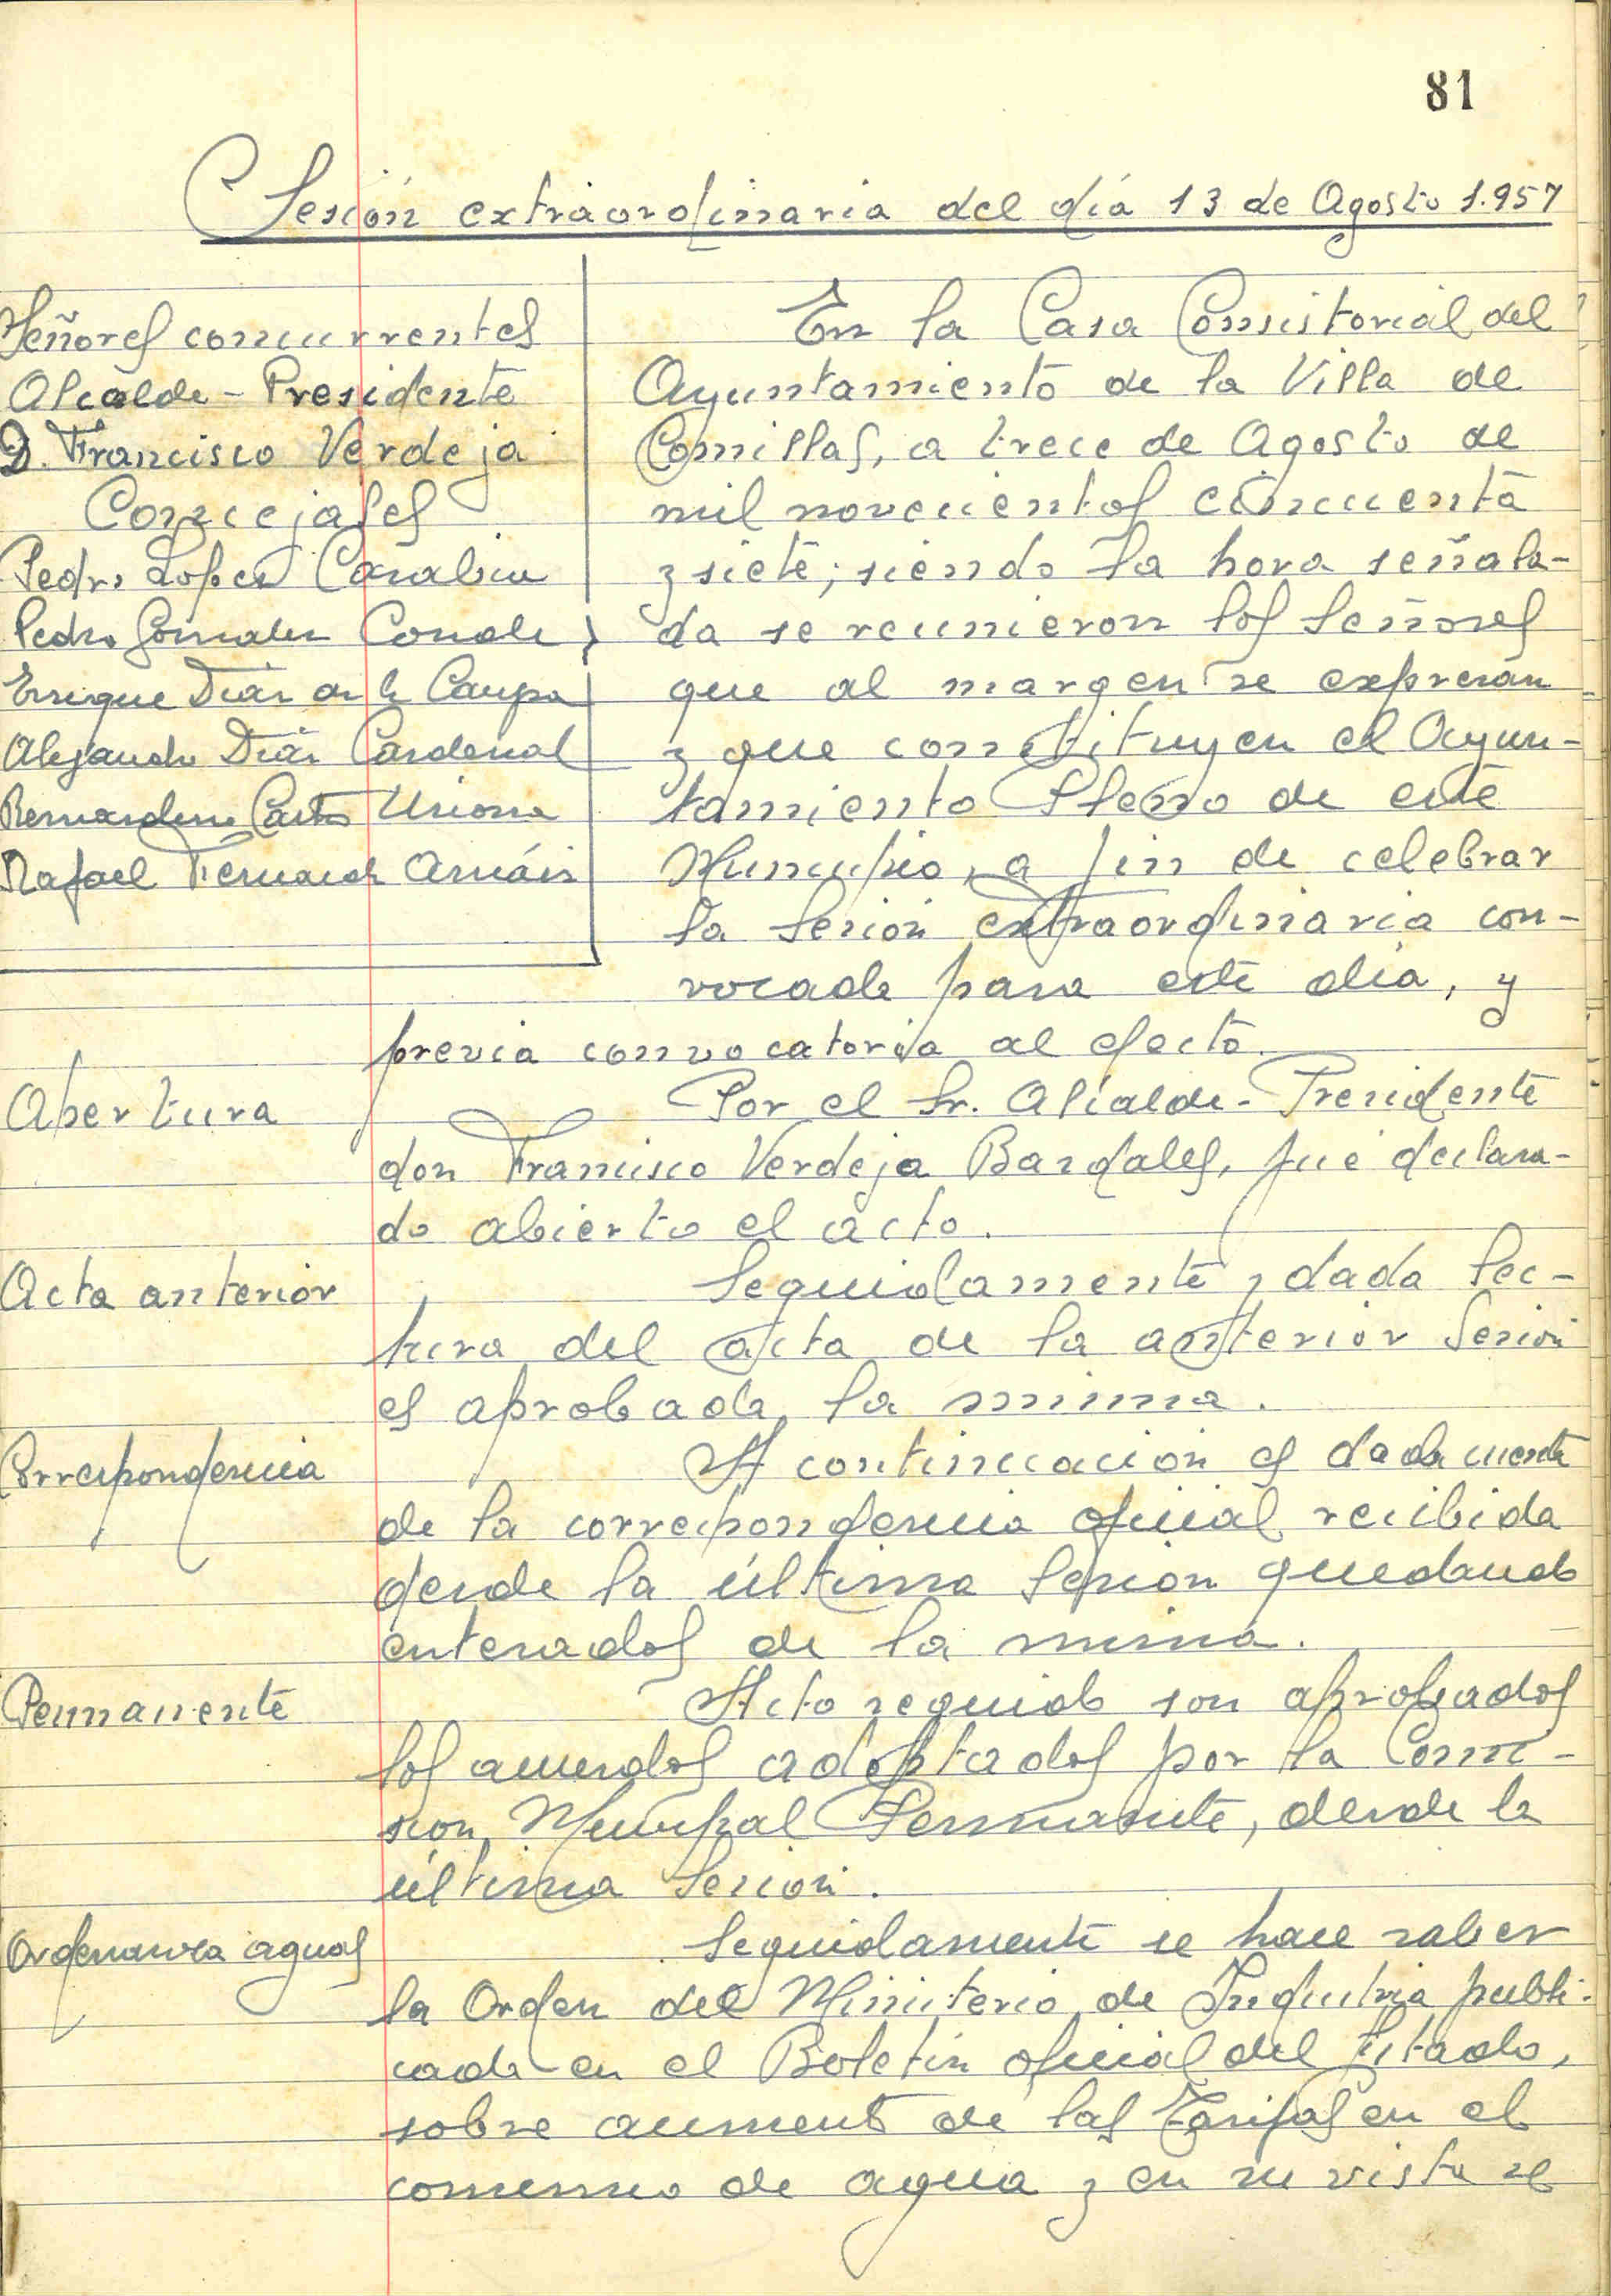 81
Sesión extraordinaria del día 13 de Agosto 1.957
Señores concurrentes
Alcalde - Presidente
D. Francisco Verdeja
Concejales
Pedro Lopez
Pedro Gonzalez Conde
Enrique Díaz de la Campa
Alejandro Díaz Cardenal
Bernardino
Rafael Fernandez Arnáiz
En la Casa Consistorial del
Ayuntamiento de la Villa de
Comillas, a trece de Agosto de
mil novecientos cincuenta
y siete; siendo la hora señala-
da se reunieron los Señores
que al margen se expresan
y que constituyen el Ayun-
tamiento Pleno de este
Municipio, a fin de celebrar
la Sesión extraordinaria con-
vocada para este día, y
previa convocatoria al efecto.
Apertura
Por el Sr. Alcalde - Presidente
don Francisco Verdeja Bardales, fué declara-
do abierto el acto.
Acta anterior
Seguidamente y dada lec-
tura del acta de la anterior Sesión
es aprobada la misma.
Correspondencia
A continuación es dada cuenta
de la correspondencia oficial recibida
desde la última Sesión quedando
enterados de la misma.
Permanente
Acto seguido son aprobados
los acuerdos adoptados por la Comi-
sion Municipal Permanente, desde la
última Sesión.
Ordenanza aguas
Seguidamente se hace saber
la Orden del Ministerio de Industria publi-
cada en el Boletín oficial del Estado,
sobre aumento de las Tarifas en el
consumo de agua y en su vista se